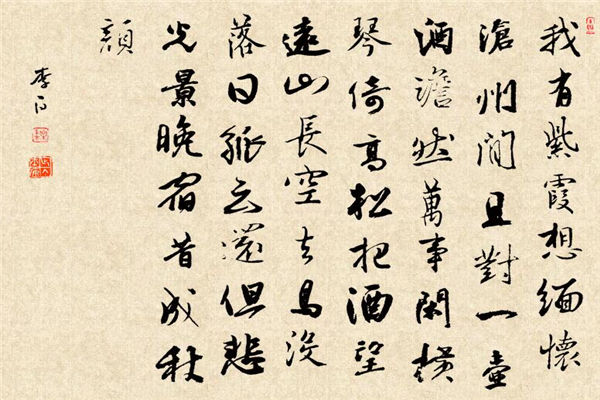 我有紫霞想緬懷
滄州間且對一壺
酒澹然萬事閑橫
琴倚高松把酒望
遠山長空去鳥沒
落日孤云還但悲
光景晚宿昔成秋
顏
李